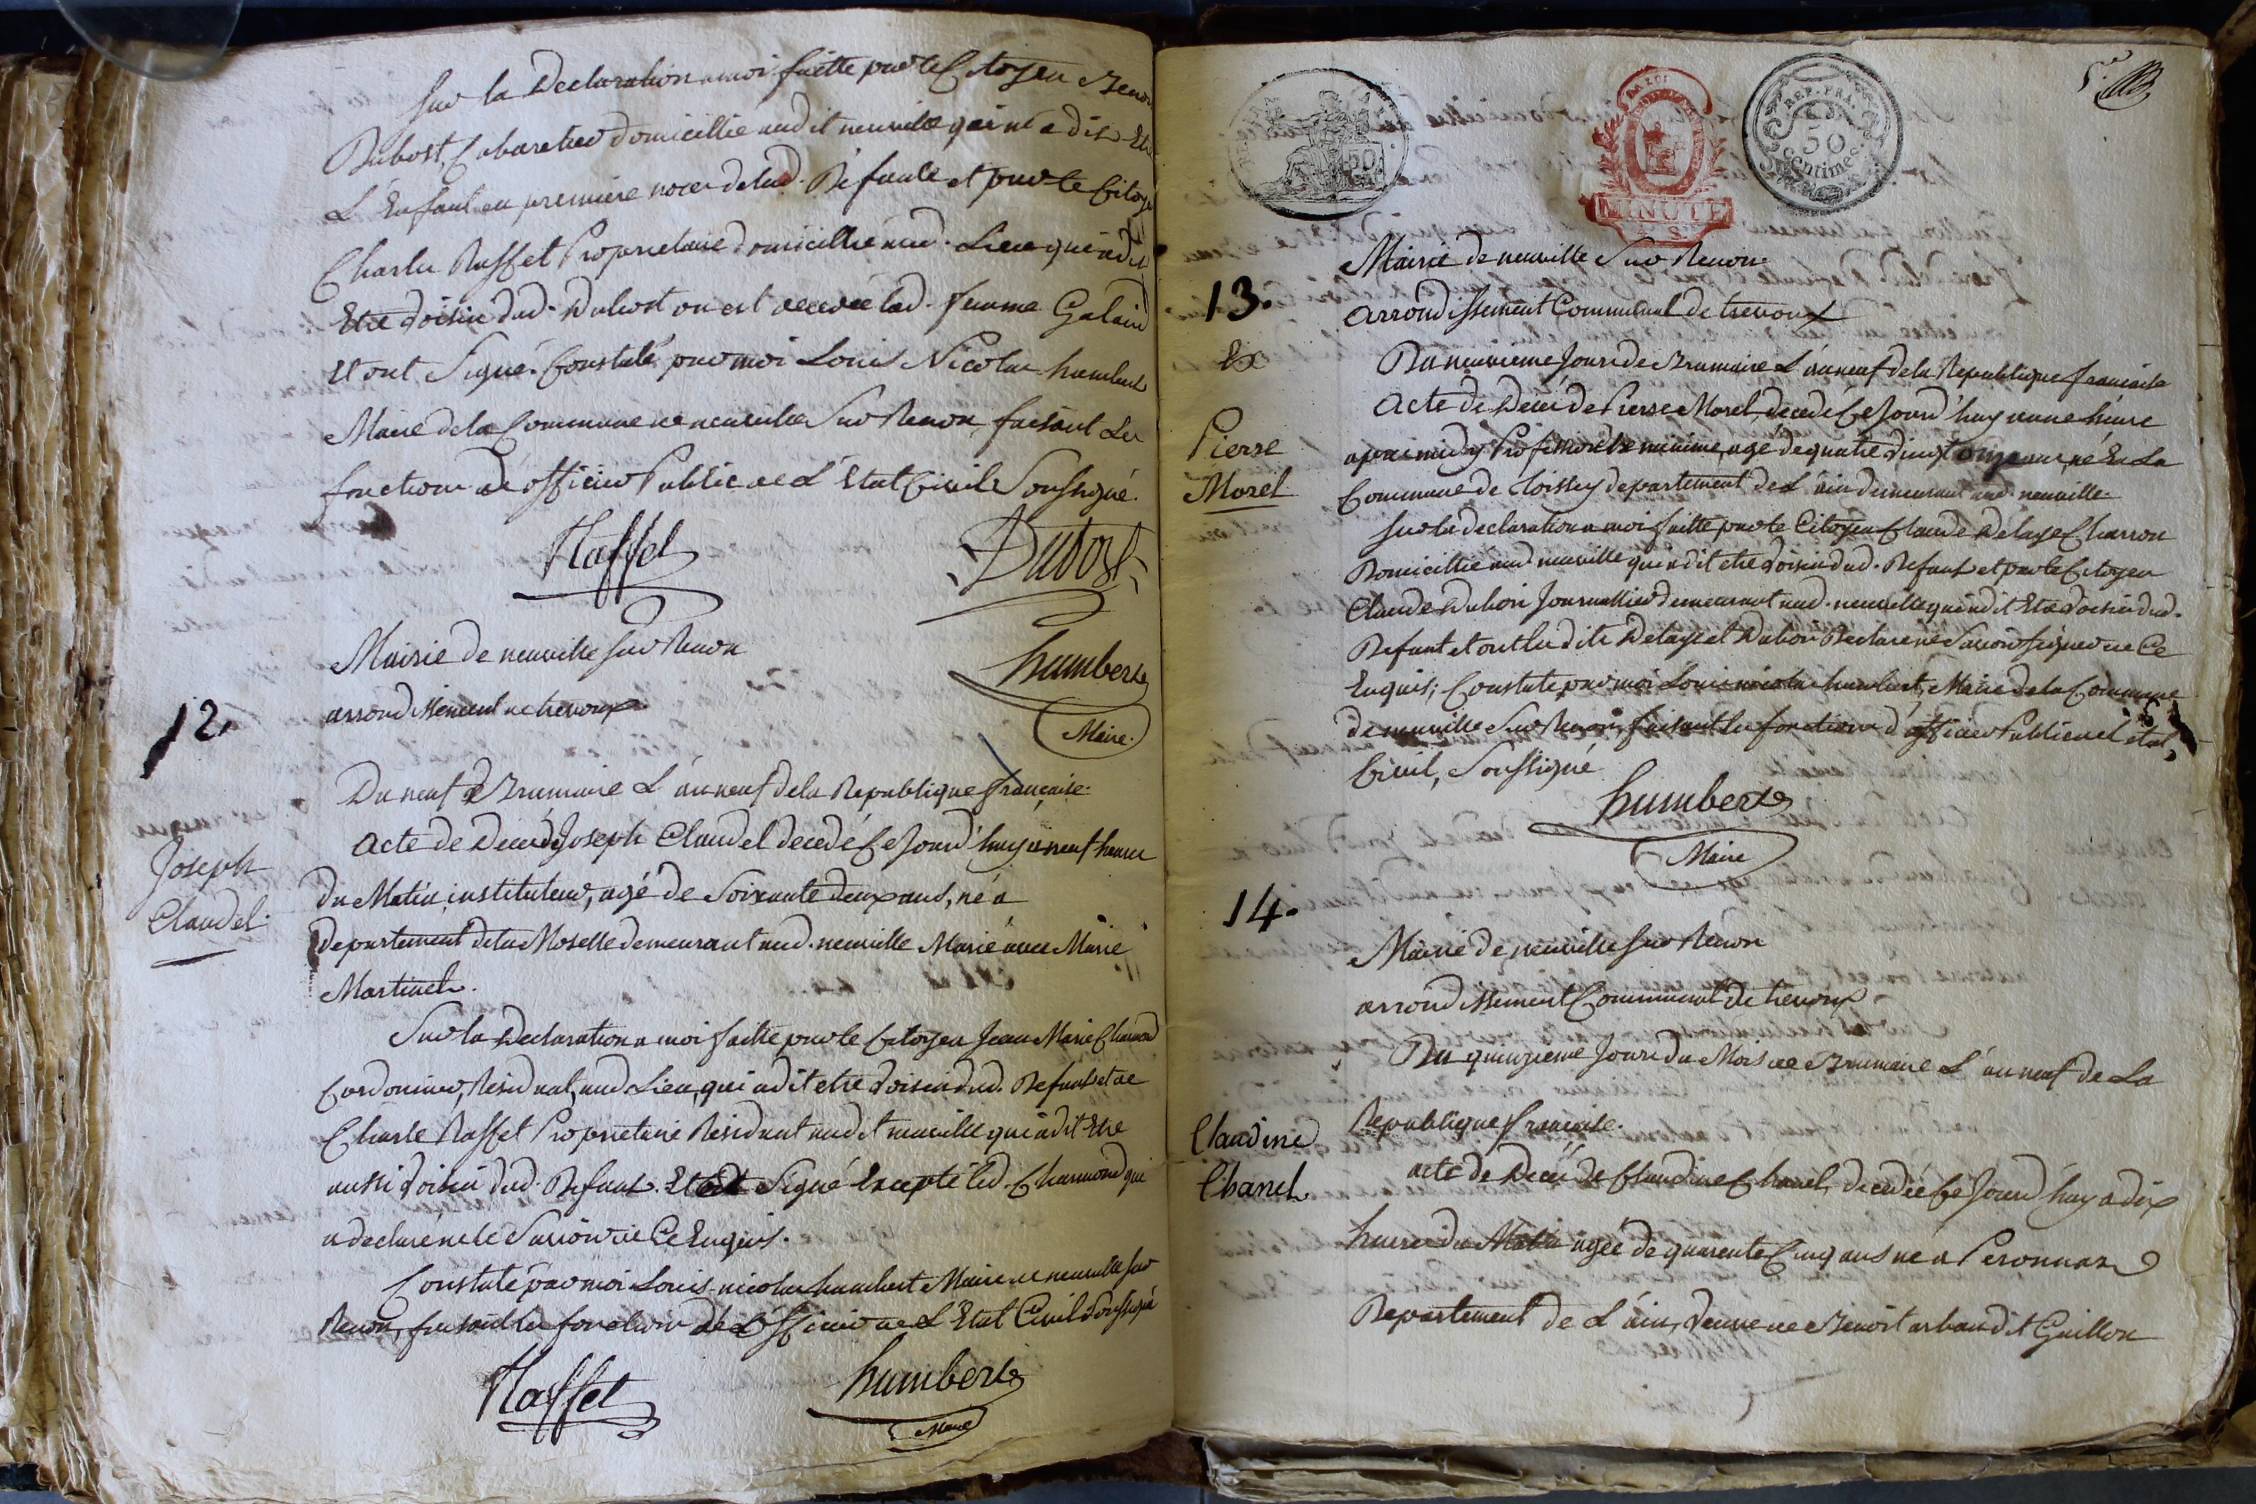 Sur la Declaration a moi faitte par le Citoyen Benoi
Dubost, Cabaretier domicillié audit neuville qui m'a dit Etre
L'Enfant en premiere noce de lad. Defunte et par le Citoye
Charle Raffet Proprietaire domicillié aud. Lieu qui a dit
Etre Voisin dud. Dubost ou est decedée lad. femme Galand
Et ont Signé. Constaté par moi Louis Nicolas humbert
Maire de la Commune de neuville Sur Renon, faisant Les
fonctions de officier Public de L'Etat Civil Soussigné.
Raffet Dubost
humbert
Maire
Mairie de neuville sur Renon
arrondissement de trevoux
12.
Joseph
Claudel.
Du neuf Brumaire L'an neuf de la Republique française.
Acte de Decés de Joseph Claudel decedé Ce Jourd'huy a neuf heures
Du Matin, instituteur, agé de Soixante deux ans, né a
departement de la Moselle demeurant aud. neuville Marié avec Marie
Martinet.
Sur la Declaration a moi faitte par le Citoyen Jean Marie Charmond
Cordonnier, Residant aud Lieu, qui a dit etre Voisin dud. Defunt et de
Charle Raffet Proprietaire Residant audit neuville qui a dit Etre
aussi Voisin dud. Defunt. Et ont Signé Excepté led. Charmond qui
a declaré ne le Savoir de Ce Enquis.
Constaté par moi Louis nicolas humbert Maire de neuville sur
Renon, faisant les fonctions de Officier de L'Etat Civil Soussigné
Raffet humbert
Maire
5.e
REP. FRA.
50
centimes
MINUTE
13.
Pierre
Morel
Mairie de neuville Sur Renon.
arrondissement Communal de trevoux
Du neuvieme Jour de Brumaire L'an neuf de la Republique française
Acte de Decés de Pierre Morel, decedé Ce Jourd'huy a une heure
apres midy Prof minime, agé de quatre Vingt onze ans né En La
Commune de Toissey departement de L'ain demeurant aud. neuville.
Sur la declaration a moi faitte par le Citoyen Claude Delaye Charron
Domicillié aud neuville qui a dit etre Voisin dud. Defunt et par le Citoyen
Claude Dubon Journallier demeurant aud. neuville qui a dit Etre Voisin dud.
Defunt et ont lesdits Delaye et Dubon Declaré ne Savoir signer de Ce
Enquis; Constaté par moi Louis nicolas humbert, Maire de la Commune
de neuville Sur Renon, faisant les fonctions d'officier Public de L'état
Civil, Soussigné
humbert
Maire
14.
Claudine
Chanel
Mairie de neuville sur Renon
arrondissement Communal de trevoux
Du quinzieme Jour du Mois de Brumaire L'an neuf de La
Republique française.
acte de Decés de Claudine Chanel, decedée Ce Jourd'huy a dix
heures du Matin agée de quarente Cinq ans né a Peronnas
Departement de L'ain, Veuve de Benoit arban dit Guillon